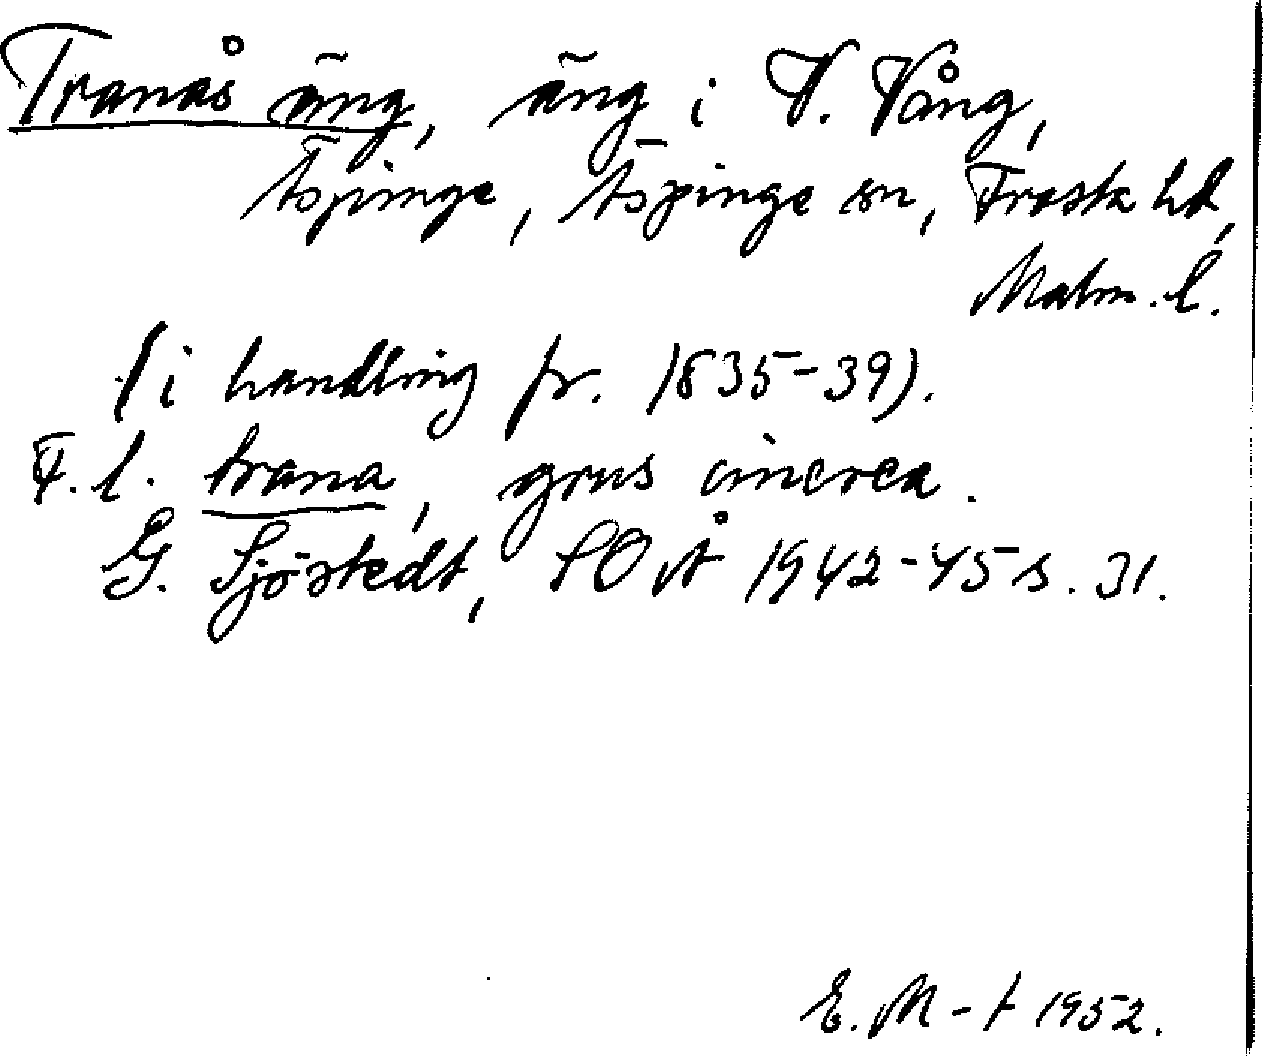 Tranås äng, äng i V. Vång,
Äspinge, Äspinge sn, Frosta hd,
Malm. l.
(i handling fr. 1835-39).
F. l. trana, grus cinerea.
G. Sjöstedt, SOÅ 1942-45 s. 31.
E. M-t 1952.